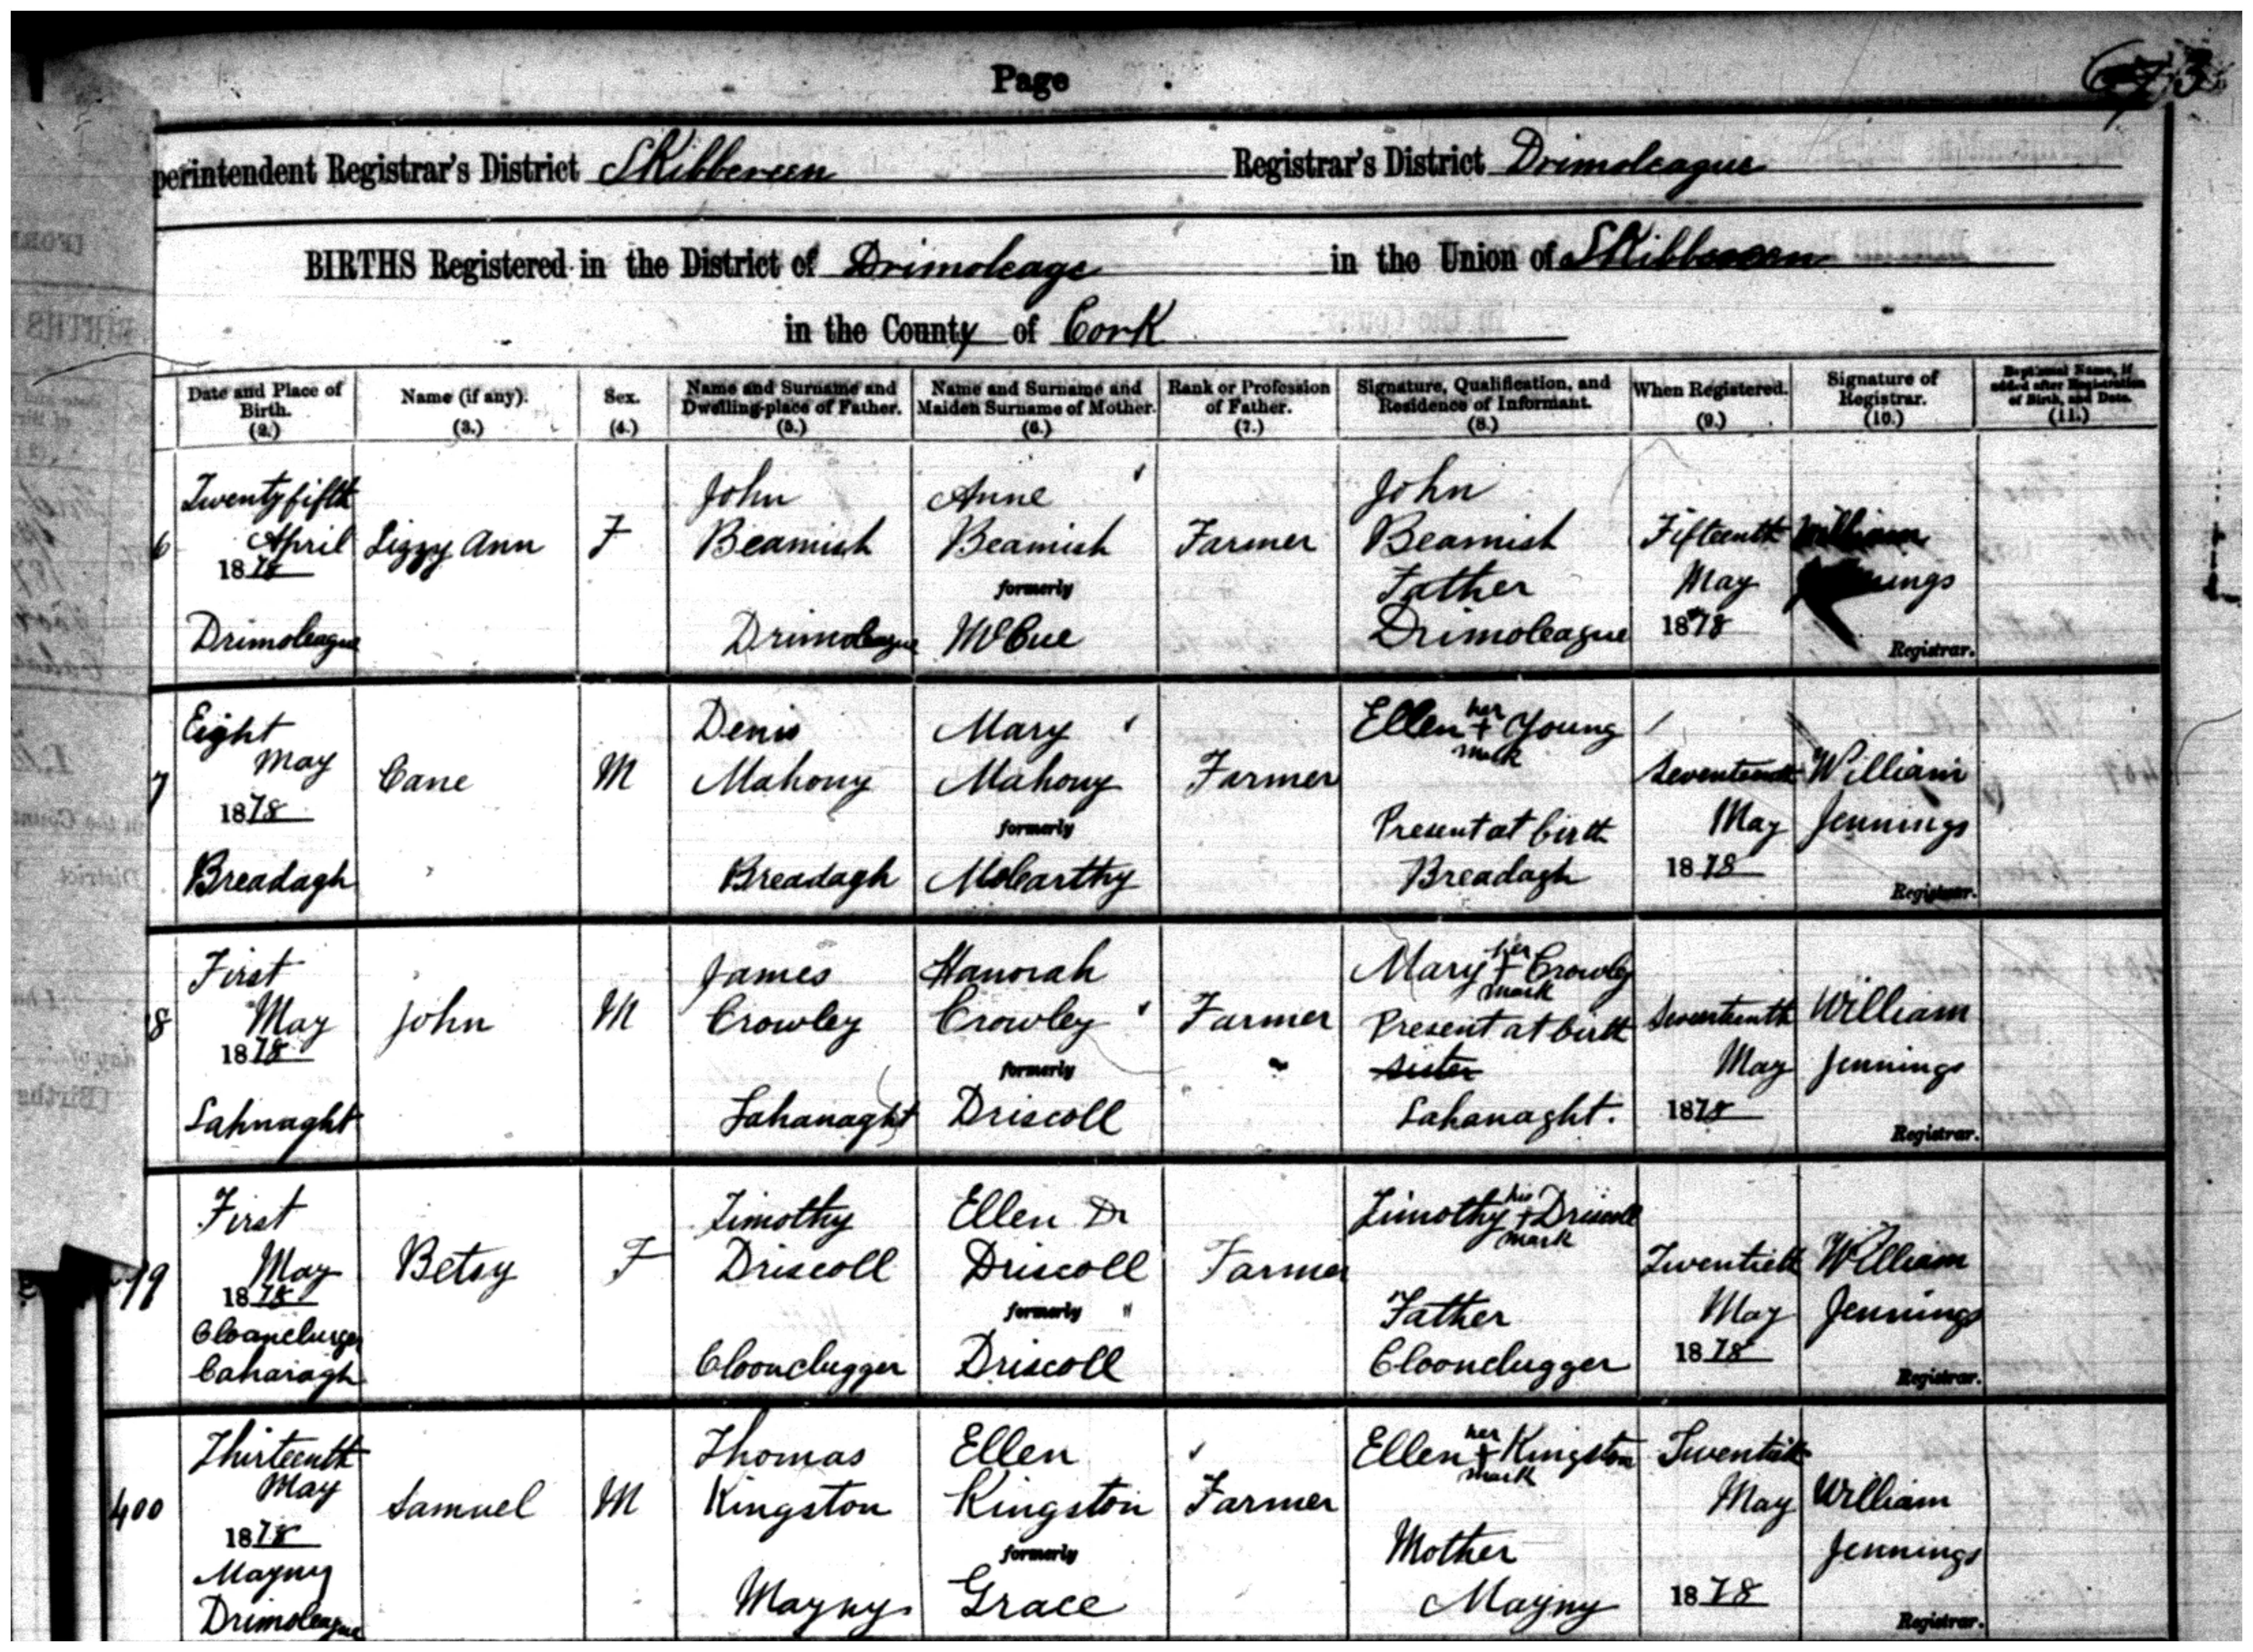 Page
perintendent Registrar's District Skibbereen Registrar's District Drimoleague
BIRTHS Registered in the District of Drimoleage in the Union of Skibbereen
in the County of Cork
Date and Place of Birth. (2.) Name (if any). (3.) Sex. (4.) Name and Surname and Dwelling-place of Father. (5.) Name and Surname and Maiden Surname of Mother. (6.) Rank or Profession of Father. (7.) Signature, Qualification, and Residence of Informant. (8.) When Registered. (9.) Signature of Registrar. (10.) Baptismal Name, if added after Registration of Birth, and Date. (11.)
Twenty fifth John Anne John
6 April Lizzy Ann F Beamish Beamish Farmer Beamish Fifteenth William
1878 formerly Father May
Drimoleague Drimoleague McCue Drimoleague 1878 Registrar.
Eight Denis Mary Ellen her + mark Young
7 May Cane M Mahony Mahony Farmer Seventeenth William
1878 formerly Present at birth May Jennings
Breadagh Breadagh McCarthy Breadagh 1878 Registrar.
First James Hanorah Mary her + mark Crowley
8 May John M Crowley Crowley Farmer Present at birth Seventeenth William
1878 formerly sister May Jennings
Lahnaght Lahanaght Driscoll Lahanaght. 1878 Registrar.
First Timothy Ellen Dr Timothy his + mark Driscoll
99 May Betsy F Driscoll Driscoll Farmer Twentieth William
1878 formerly Father May Jennings
Caharagh Cloonclugger Driscoll Cloonclugger 1878 Registrar.
Thirteenth Thomas Ellen Ellen her + mark Kingston Twentieth
400 May Samuel M Kingston Kingston Farmer May William
1878 formerly Mother Jennings
Mayny Mayny Grace Mayny 1878
Drimoleague Registrar.